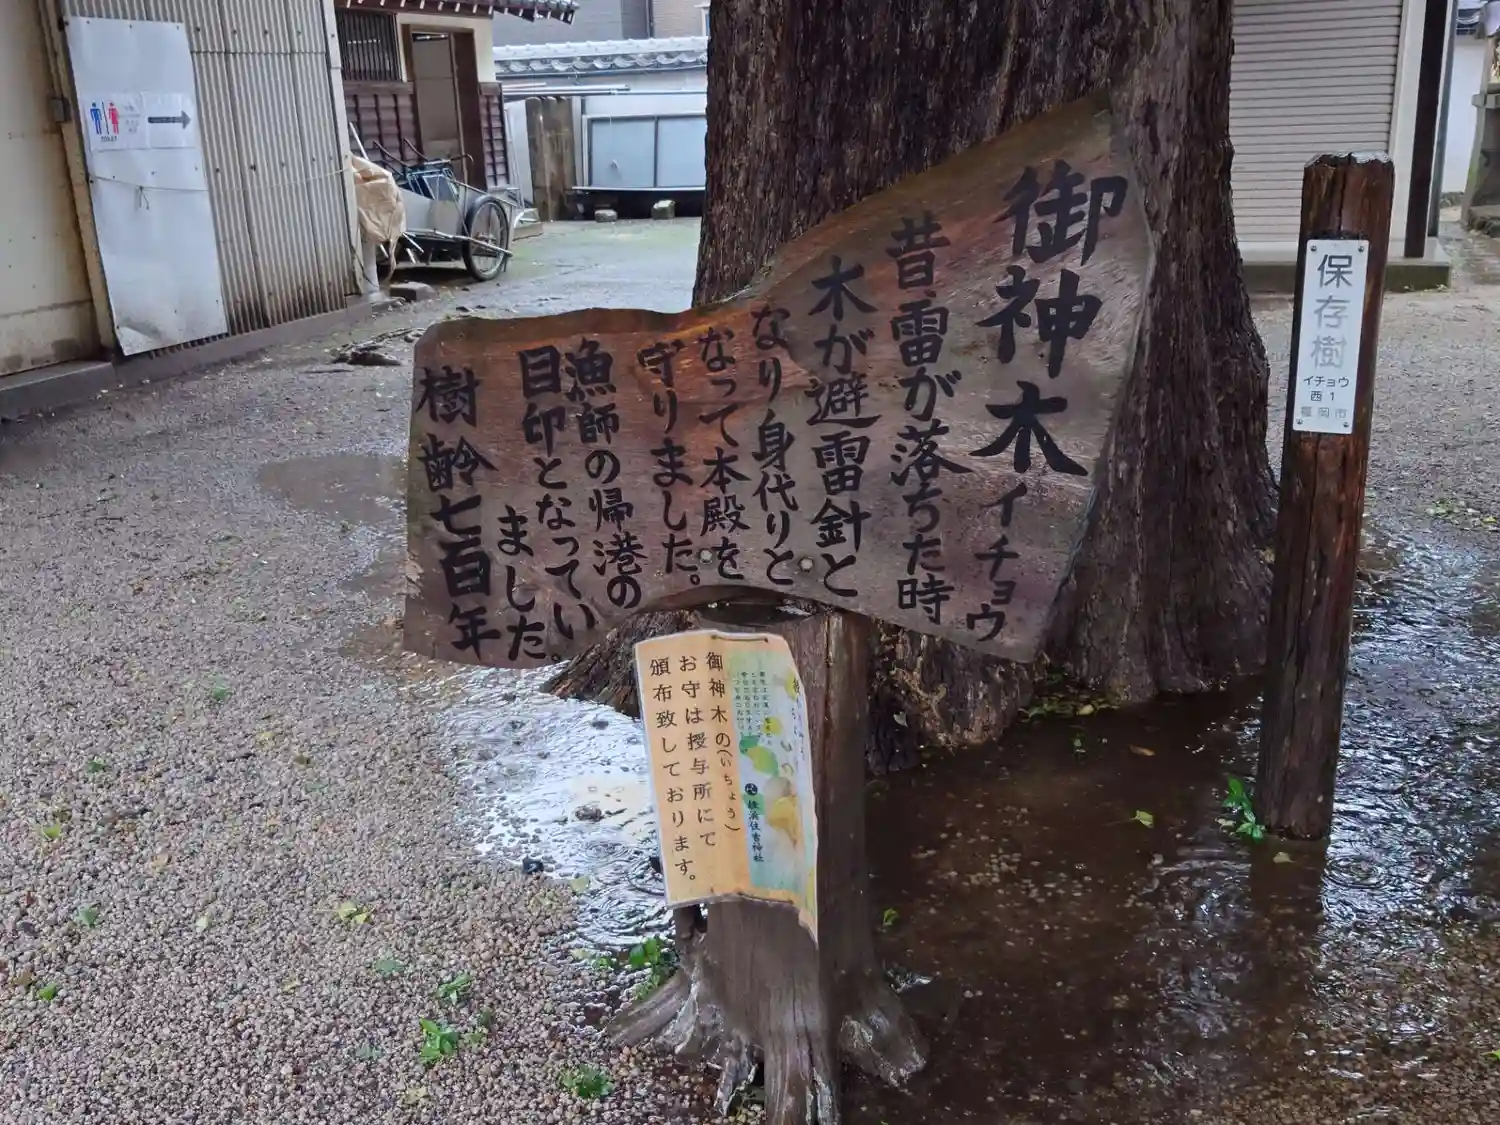 御神木 イチョウ
昔、雷が落ちた時
木が避雷針と
なり身代りと
なって本殿を
守りました。
漁師の帰港の
目印となってい
ました。
樹齢七百年
御神木の(いちょう)
お守は授与所にて
頒布致しております。
住吉神社
保存樹
イチョウ
西1
福岡市
TOILET